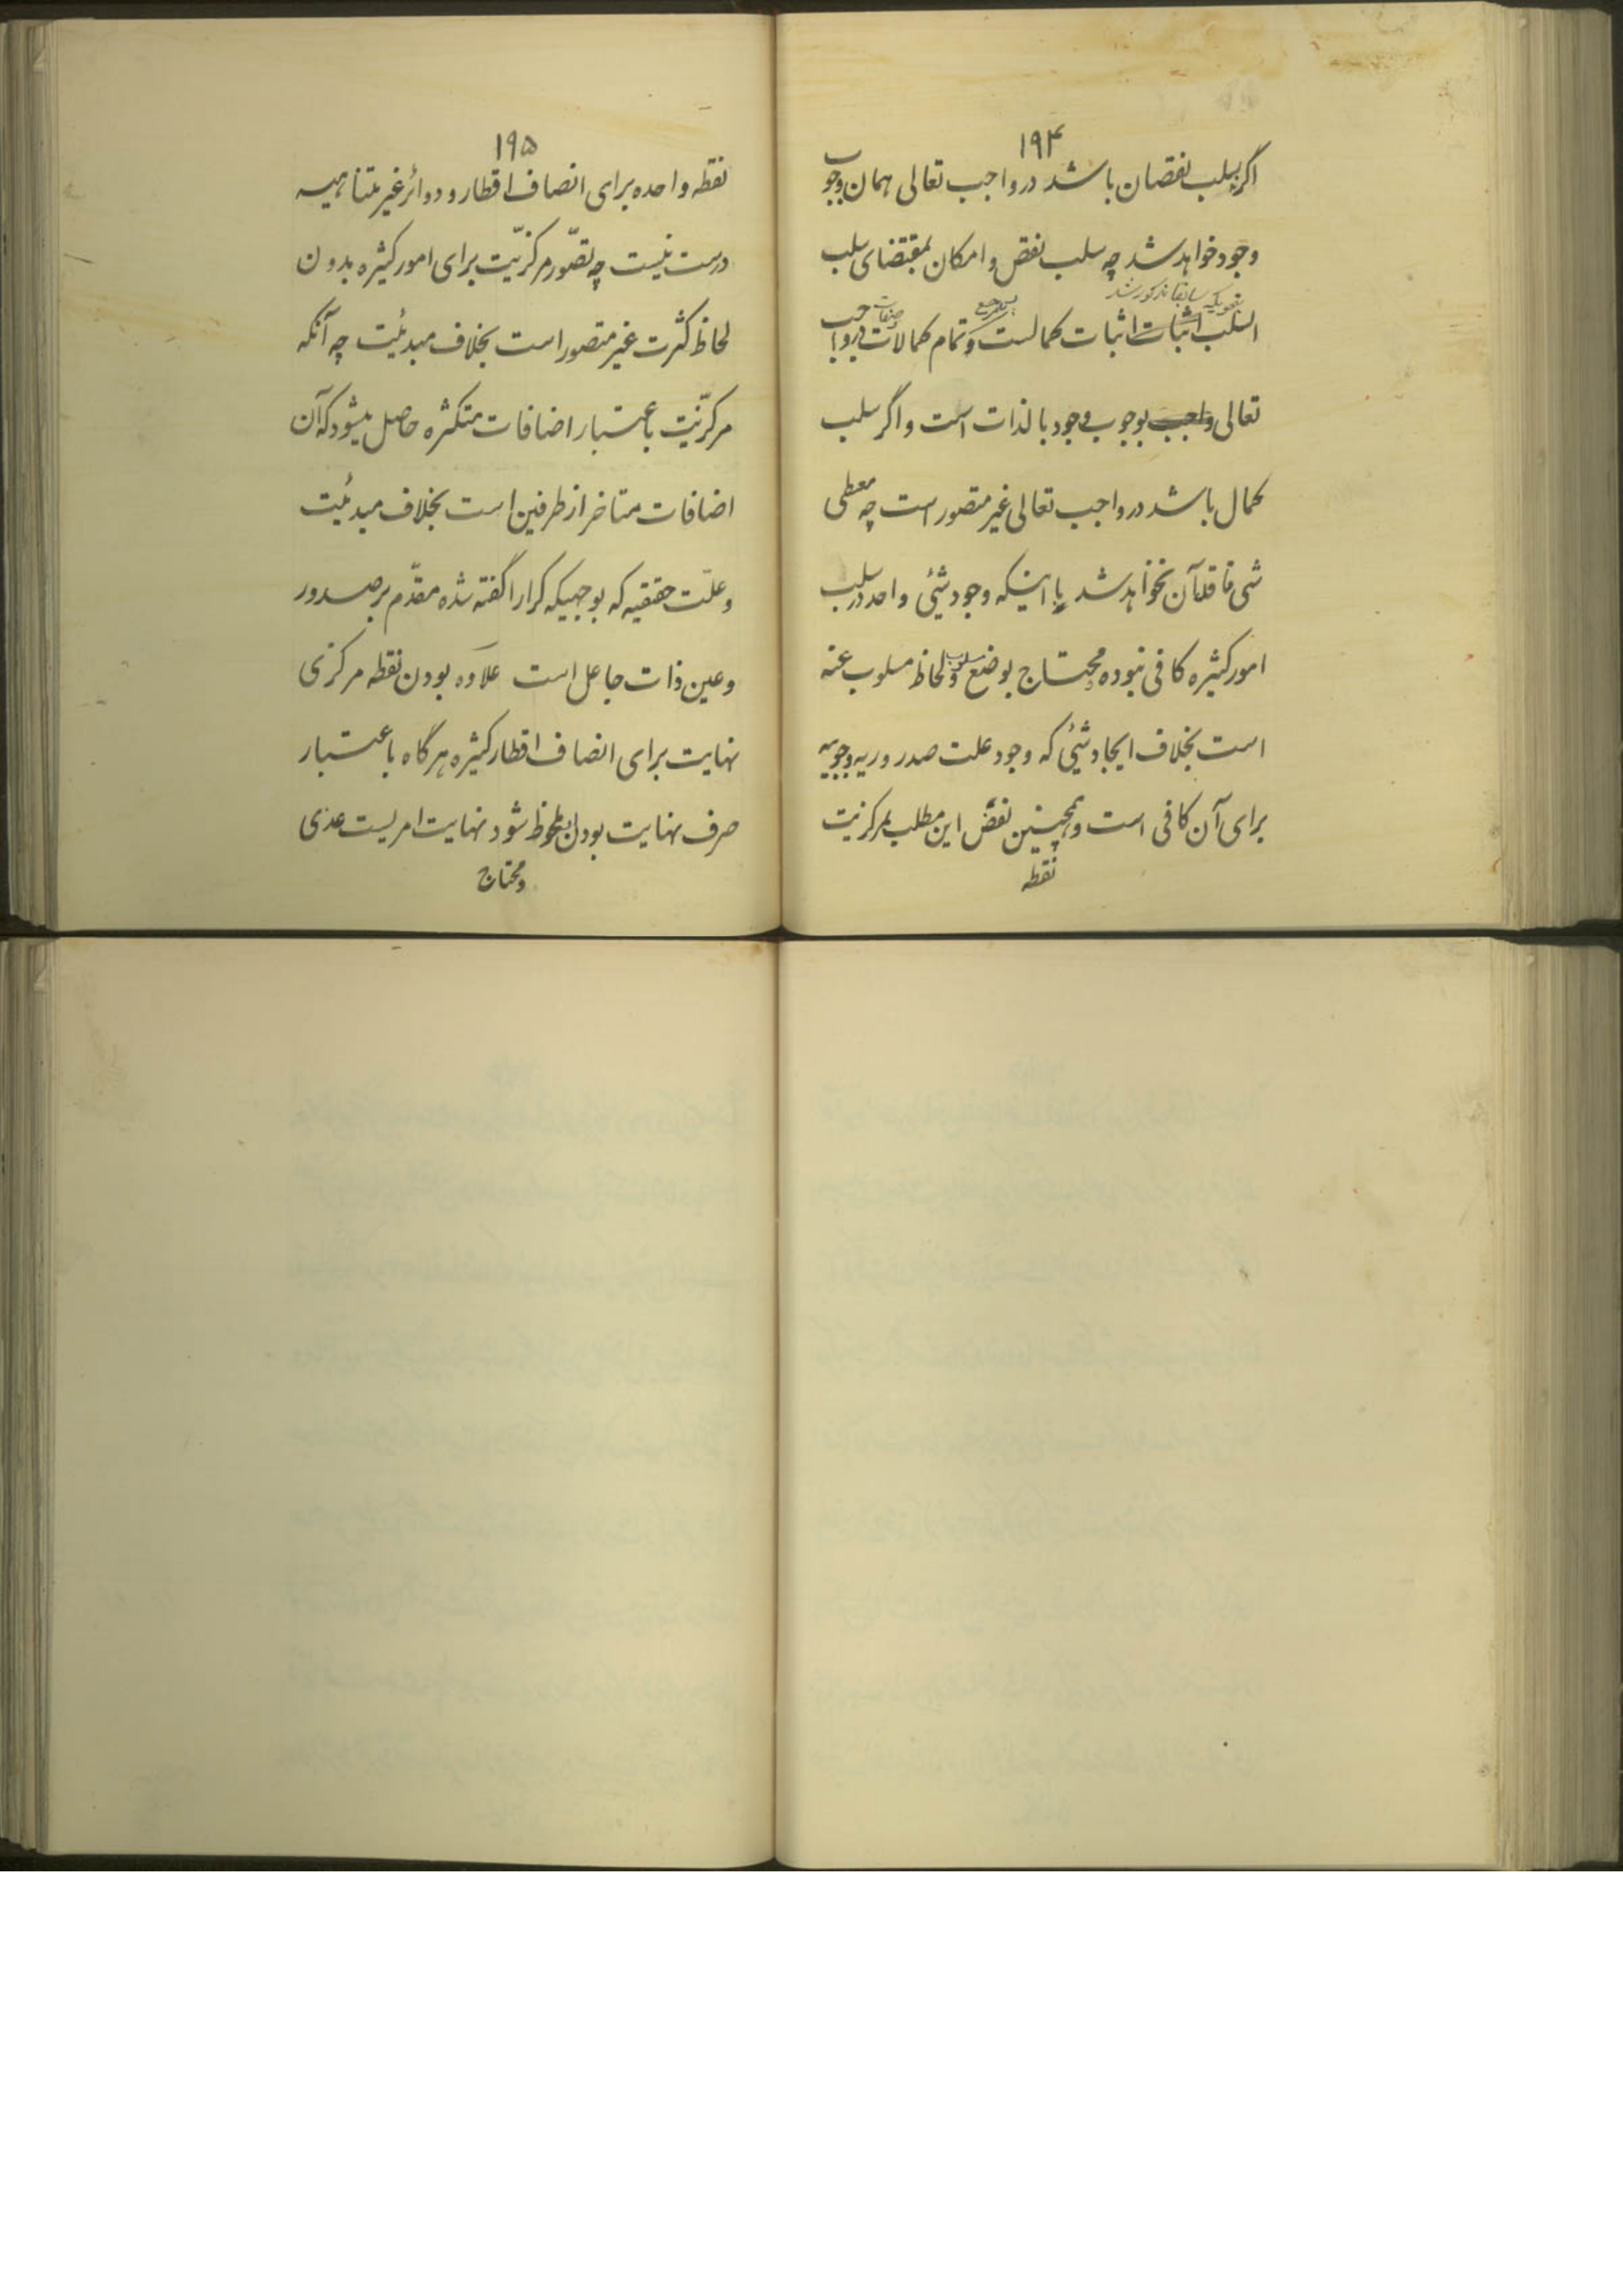 ۱۹۴
اگر سلب نقصان باشد در واجب تعالی همان وجوب
وجود خواهد شد چه سلب نقص و امکان بمقتضای سلب
بنحویکه سابقا مذکور شد
السلب اثبات اثبات کمالست و تمام کمالات در واجب
تعالی واجب بوجوب وجود بالذات است و اگر سلب
کمال باشد در واجب تعالی غیر متصور است چه معطی
شی فاقد آن نخواهد شد با اینکه وجود شیئ واحد در سلب
امور کثیره کافی نبوده محتاج بوضع مسلوب و لحاظ مسلوب عنه
است بخلاف ایجاد شیئی که وجود علت صدوریه وجوبیه
برای آن کافی است و همچنین نقض این مطلب بمرکزیت
نقطه
۱۹۵
نقطه واحده برای انصاف اقطار و دوائر غیر متناهیه
درست نیست چه تصّور مرکزّیت برای امور کثیره بدون
لحاظ کثرت غیر متصور است بخلاف مبدئیت چه آنکه
مرکزّیت باعتبار اضافات متکثره حاصل میشود که آن
اضافات متاخر از طرفین است بخلاف مبدئیت
و علّت حقیقیه که بوجهیکه کرارا گفته شده مقدّم بر صدور
و عین ذات جاعل است علاوه بودن نقطه مرکزی
نهایت برای انصاف اقطار کثیره هرگاه باعتبار
صرف نهایت بودن ملحوظ شود نهایت امریست عدمی
و محتاج